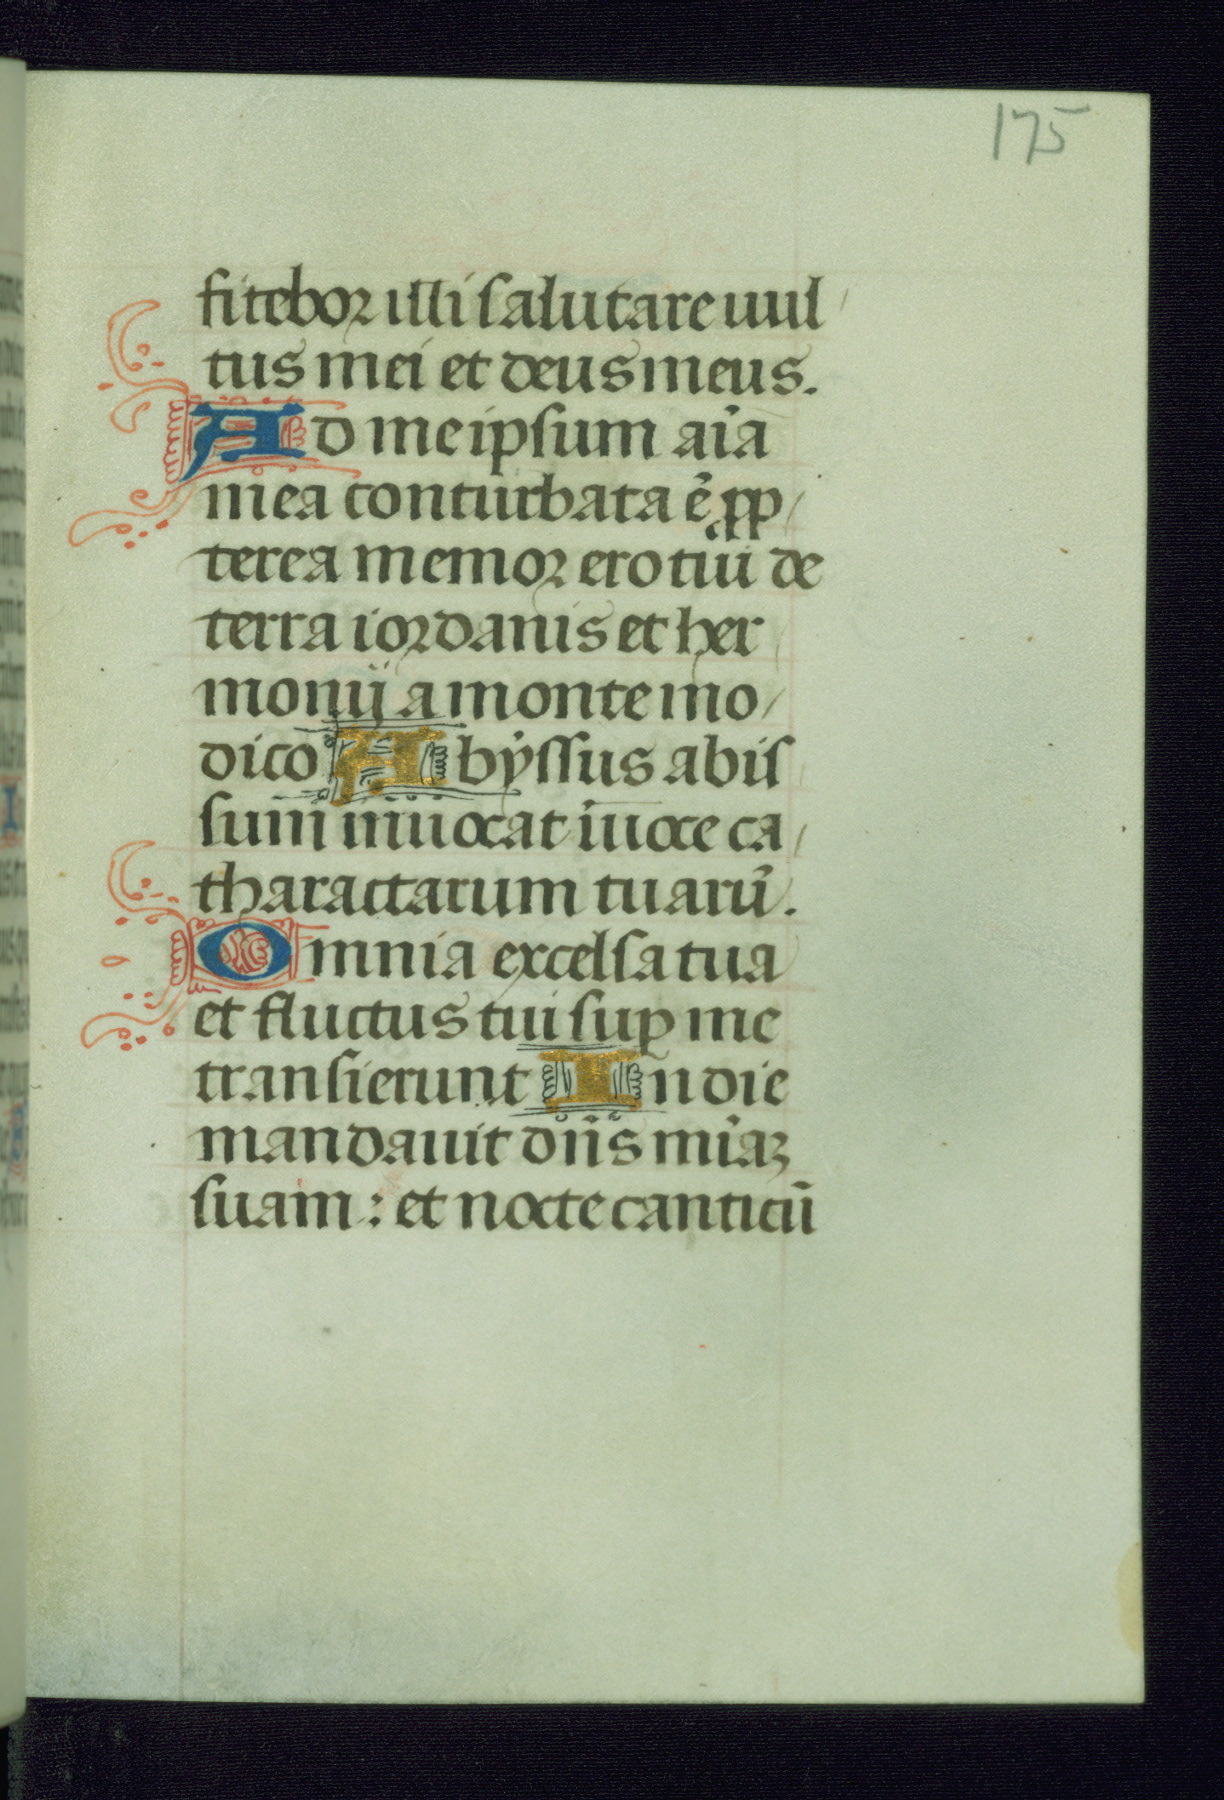 175
fitebor illi salutare uul/
tus mei et deus meus.
Ad me ipsum aīa
mea conturbata ē ꝓp/
terea memor ero tui de
terra iordanis et her
monij a monte mo/
dico Abẏssus abis
sum inuocat ī uoce ca/
tharactarum tuarū.
Omnia excelsa tua
et fluctus tui suꝑ me
transierunt In die
mandauit dn̄s mīaꝫ
suam: et nocte canticū